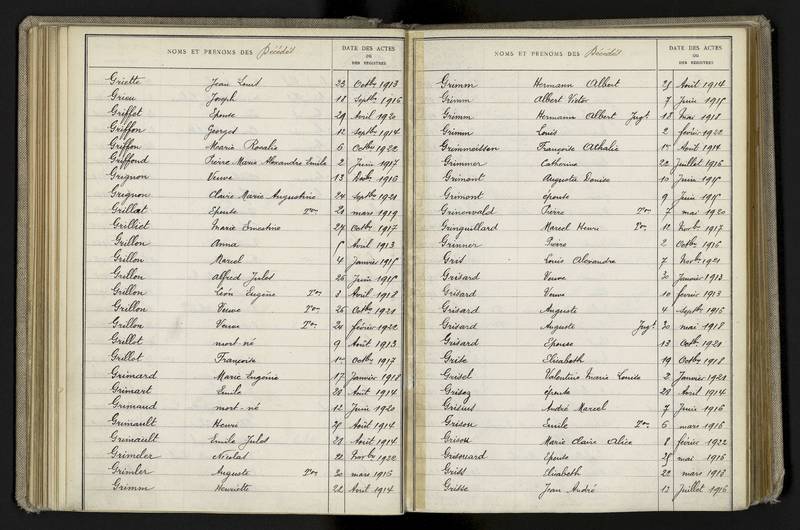 NOMS ET PRÉNOMS DES Décédés
DATE DES ACTES
OU
DES REGISTRES
Griette Jean Louis 23 Octbre 1913
Grieu Joseph 18 Septbre 1916
Griffet Epouse 29 Avril 1920
Griffon Georges 12 Septbre 1914
Griffon Marie Rosalie 6 Octbre 1922
Griffond Pierre Marie Alexandre Emile 2 Juin 1917
Grignon Veuve 13 1916
Grignon Claire Marie Augustine 24 Septbre 1921
Grillat Epouse Ton 21 mars 1919
Grilliet Marie Ernestine 27 Octbre 1917
Grillon Anna 5 Avril 1913
Grillon Marcel 4 Janvier 1915
Grillon Alfred Jules 26 Juin 1915
Grillon Léon Eugène Ton 8 Avril 1918
Grillon Veuve Ton 26 Octbre 1921
Grillon Veuve Ton 21 février 1922
Grillot mort-né 9 Août 1913
Grillot Françoise 1er Octbre 1917
Grimard Marie Eugénie 17 Janvier 1918
Grimart Emile 28 Août 1914
Grimaud mort-né 12 Juin 1920
Grimault Henri 29 Août 1914
Grimault Emile Jules 28 Août 1914
Grimeler Nicolas 22 Novbre 1922
Grimler Auguste Ton 20 mars 1916
Grimm Henriette 22 Avril 1914
NOMS ET PRÉNOMS DES Décédés
DATE DES ACTES
OU
DES REGISTRES
Grimm Hermann Albert 25 Août 1914
Grimm Albert Victor 7 Juin 1915
Grimm Hermann Albert Jugt 18 Mai 1918
Grimm Louis 2 février 1922
Grimmoisson Françoise Athalie 15 Août 1914
Grimmer Catherine 22 Juillet 1916
Grimont Augusta Denise 10 Juin 1915
Grimont epouse 9 Juin 1915
Grinenvald Pierre Ton 7 mai 1920
Gringuillard Marcel Henri Ton 12 Novbre 1917
Grinner Pierre 2 Octbre 1916
Gris Louis Alexandre 7 Novbre 1921
Grisard Veuve 30 Janvier 1913
Grisard Veuve 10 fevrier 1913
Grisard Auguste 4 Septbre 1916
Grisard Auguste Jugt 30 mai 1918
Grisard Epouse 13 Octbre 1921
Grise Elisabeth 19 Octbre 1918
Grisel Valentine Marie Louise 2 Janvier 1921
Grisez epouse 28 Avril 1914
Grisius André Marcel 7 Juin 1916
Grison Emile Ton 6 mars 1916
Grison Marie Claire Alice 8 février 1922
Grisouard Epouse 25 mai 1916
Griss Elisabeth 22 mars 1913
Grisse Jean André 13 Juillet 1916